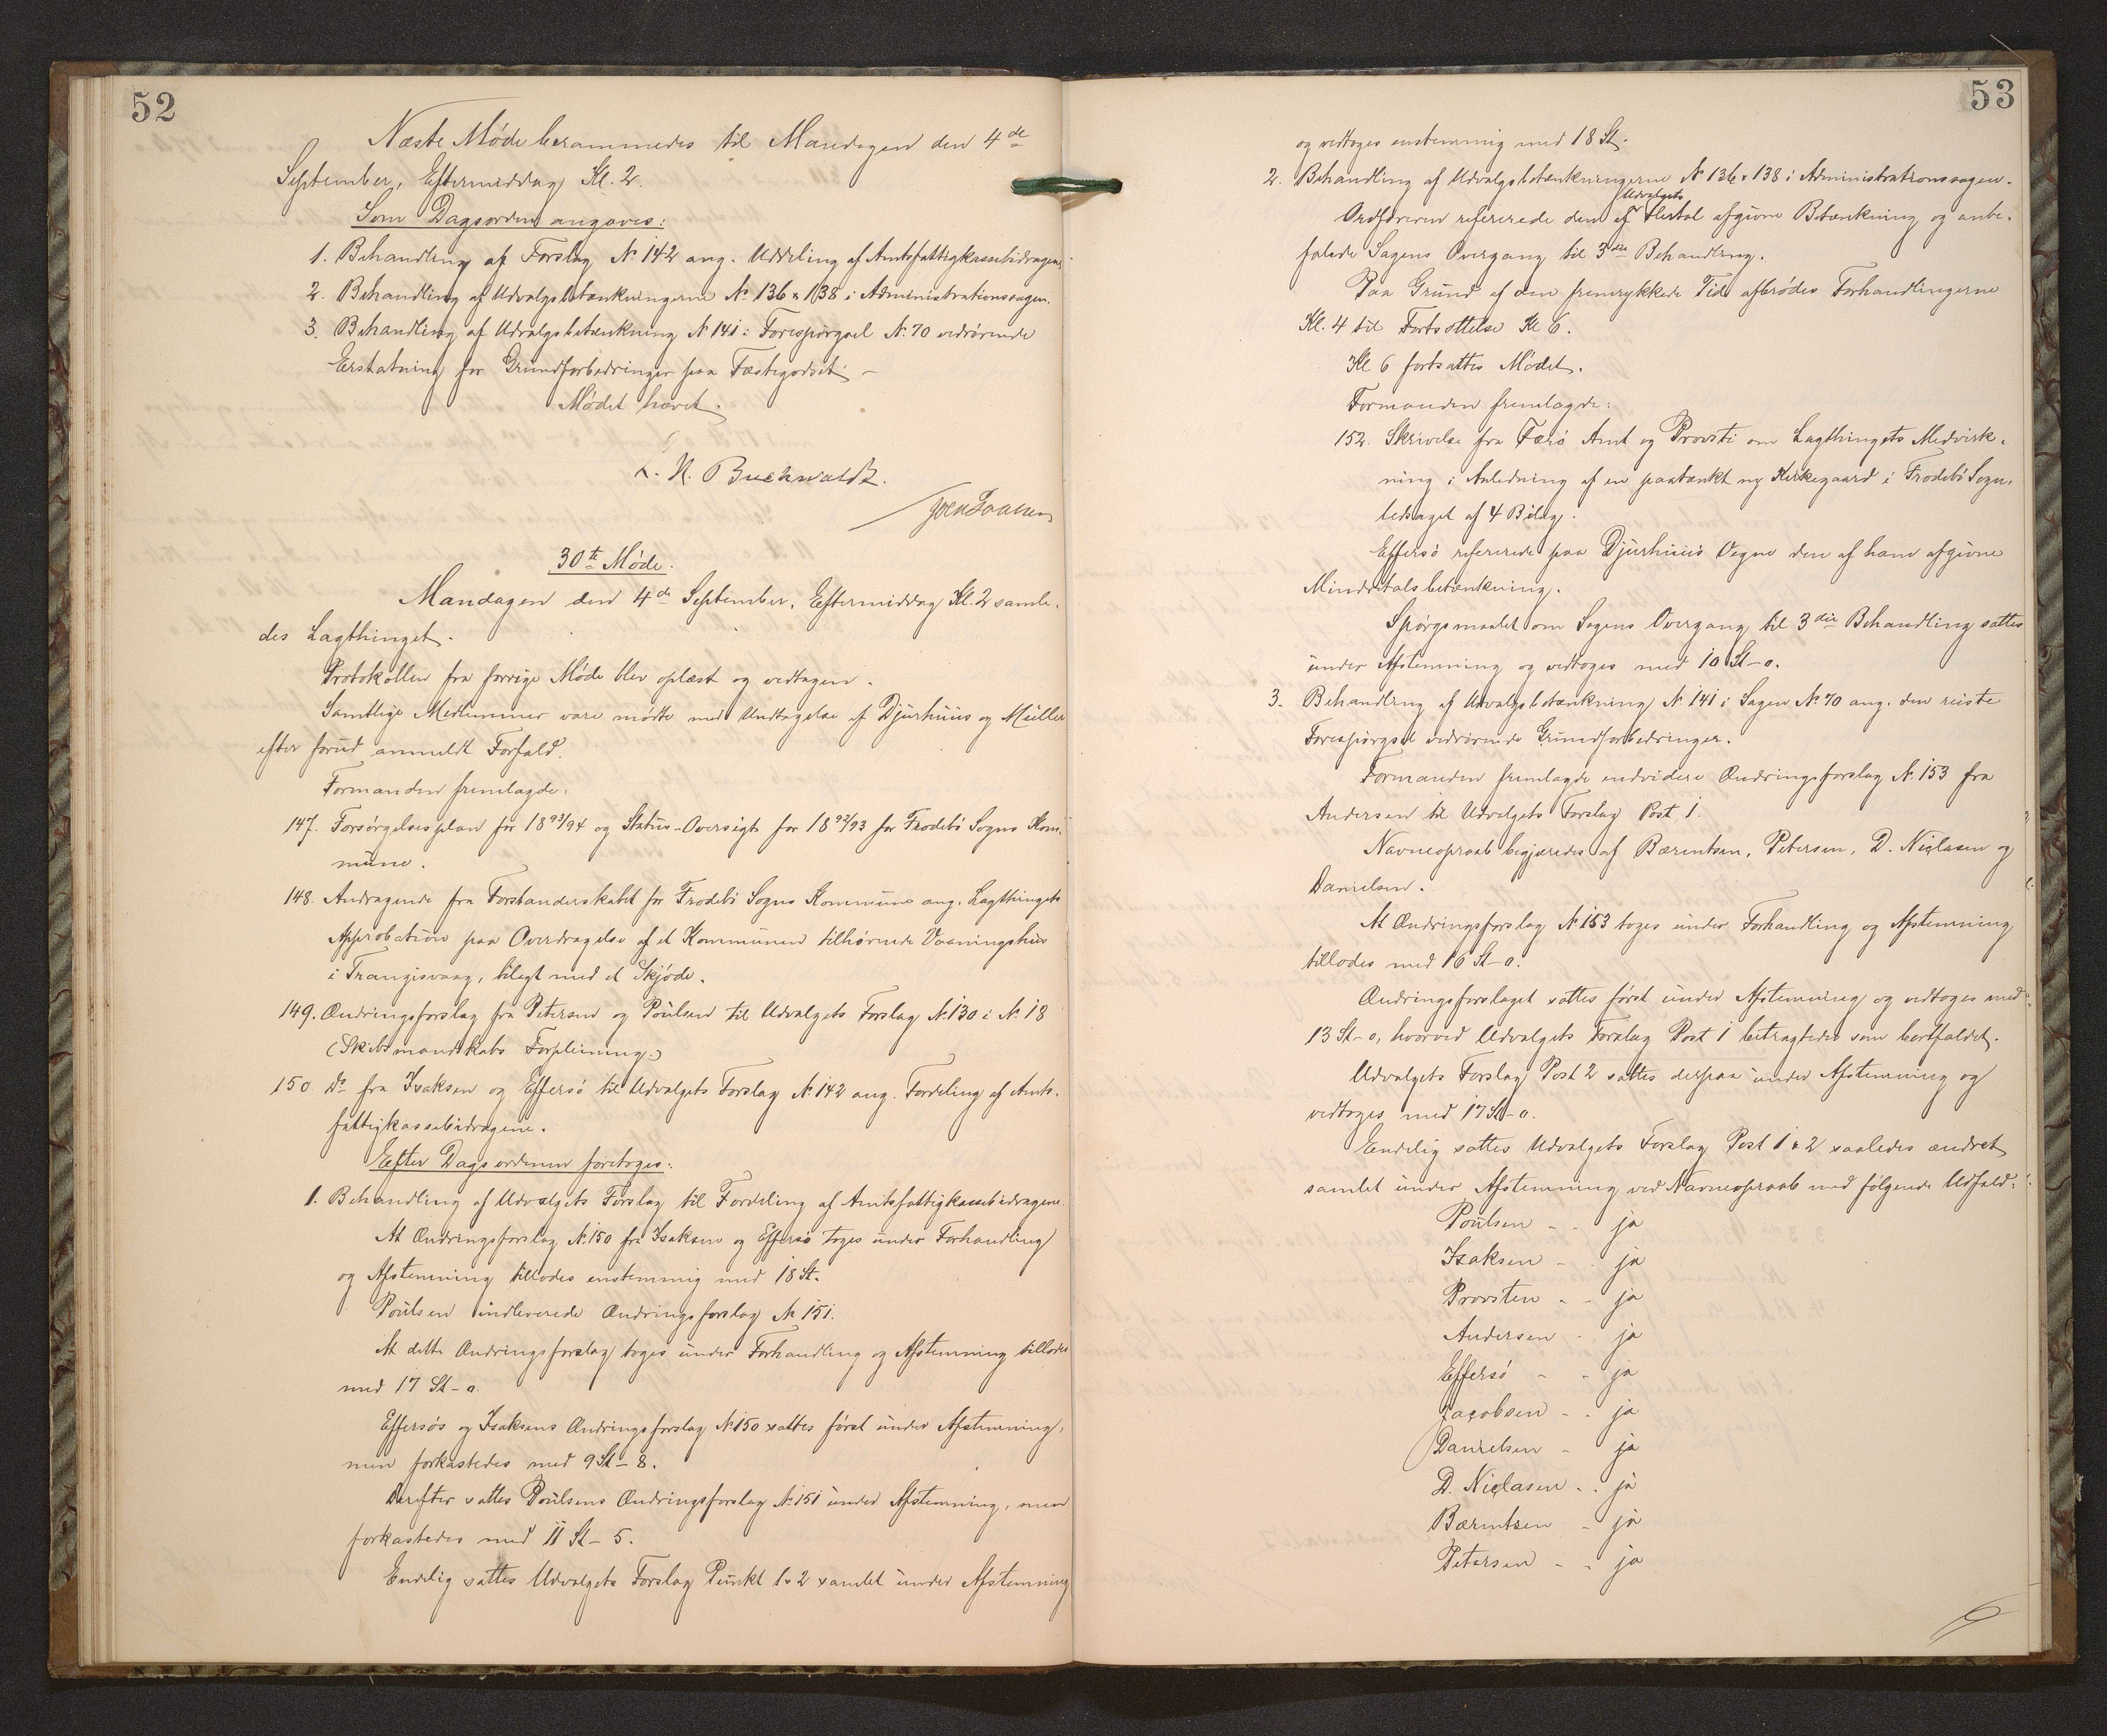 52
Næste Møde berammedes til Mandagen den 4de
September, Eftermiddag Kl. 2.
Som Dagsorden angaves:
1. Behandling af Forslag № 142 ang. Uddeling af Amtsfattigkassebidragene
2. Behandling af Udvalgsbetænkningerne № 136 & 138 i Administrationssagen.
3. Behandling af Udvalgsbetænkning № 141 i Forespørgsel № 70 vedrørende
Erstatning for Grundforbedringer paa Fæstegodset. –
Mødet hævet.
L. N. Buchwaldt.
30te Møde.
Mandagen den 4de September, Eftermiddag Kl. 2 samle-
des Lagthinget.
Protokollen fra forrige Møde blev oplæst og vedtagen.
Samtlige Medlemmer vare mødte med Undtagelse af Djurhuus og Müller
efter forud anmeldt Forfald.
Formanden fremlagde:
147. Forsørgelsesplan for 1893/94 og Status-Oversigt for 1892/93 for Frodebø Sogns Kom-
mune.
148. Andragende fra Forstanderskabet for Frodebø Sogns Kommune ang. Lagthingets
Approbation paa Overdragelse af et Kommunen tilhørende Vaaningshus
i Trangisvaag, bilagt med et Skjøde.
149. Ændringsforslag fra Petersen og Poulsen til Udvalgets Forslag № 130 i № 18
(Skibsmandskabs Forpleining.)
150. Do fra Isaksen og Effersø til Udvalgets Forslag № 142 ang. Fordeling af Amts-
fattigkassebidragene.
Efter Dagsordenen foretoges:
1. Behandling af Udvalgets Forslag til Fordeling af Amtsfattigkassebidragene.
At Ændringsforslag № 150 fra Isaksen og Effersø toges under Forhandling
og Afstemning tillodes enstemmig med 18 St.
Poulsen indleverede Ændringsforslag № 151.
At dette Ændringsforslag toges under Forhandling og Afstemning tillodes
med 17 St – 0.
Effersøs og Isaksens Ændringsforslag № 150 sattes først under Afstemning,
men forkastedes med 9 St – 8.
Derefter sattes Poulsens Ændringsforslag № 151 under Afstemning, men
forkastedes med 11 St – 5.
Endelig sattes Udvalgets Forslag Punkt 1 & 2 samlet under Afstemning
53
og vedtoges enstemmig med 18 St.
2. Behandling af Udvalgsbetænkningerne № 136 & 138 i Administrationssagen.
Udvalgets
Ordføreren refererede den af Flertal afgivne Betænkning og anbe-
falede Sagens Overgang til 3die Behandling.
Paa Grund af den fremrykkede Tid afbrødes Forhandlingerne
Kl. 4 til Fortsættelse Kl 6.
Kl 6 fortsattes Mødet.
Formanden fremlagde:
152. Skrivelse fra Færø Amt og Provsti om Lagthingets Medvirk-
ning i Anledning af en paatænkt ny Kirkegaard i Frodebø Sogn,
ledsaget af 4 Bilag.
Effersø refererede paa Djurhuus Vegne den af ham afgivne
Mindretalsbetænkning.
Spørgsmaalet om Sagens Overgang til 3die Behandling sattes
under Afstemning og vedtoges med 10 St – 0.
3. Behandling af Udvalgsbetænkning № 141 i Sagen № 70 ang. den reiste
Forespørgsel vedrørende Grundforbedringer.
Formanden fremlagde endvidere Ændringsforslag № 153 fra
Andersen til Udvalgets Forslag Post 1.
Navneopraab begjæredes af Bærentsen, Petersen, D. Niclasen og
Danielsen.
At Ændringsforslag № 153 toges under Forhandling og Afstemning
tillodes med 16 St – 0.
Ændringsforslaget sattes først under Afstemning og vedtoges med
13 St – 0, hvorved Udvalgets Forslag Post 1 betragtedes som bortfaldet.
Udvalgets Forslag Post 2 sattes derpaa under Afstemning og
vedtoges med 17 St – 0.
Endelig sattes Udvalgets Forslag Post 1 & 2 saaledes ændret
samlet under Afstemning ved Navneopraab med følgende Udfald:
Poulsen - - ja
Isaksen - - ja
Provsten - - ja
Andersen - ja
Effersø - - ja
Jacobsen - - ja
Danielsen - ja
D. Niclasen - - ja
Bærentsen - ja
Petersen - - ja